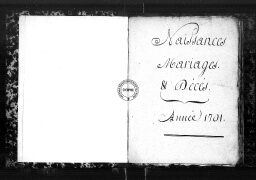 Naissances
Mariages.
& Décès.
Année 1791.